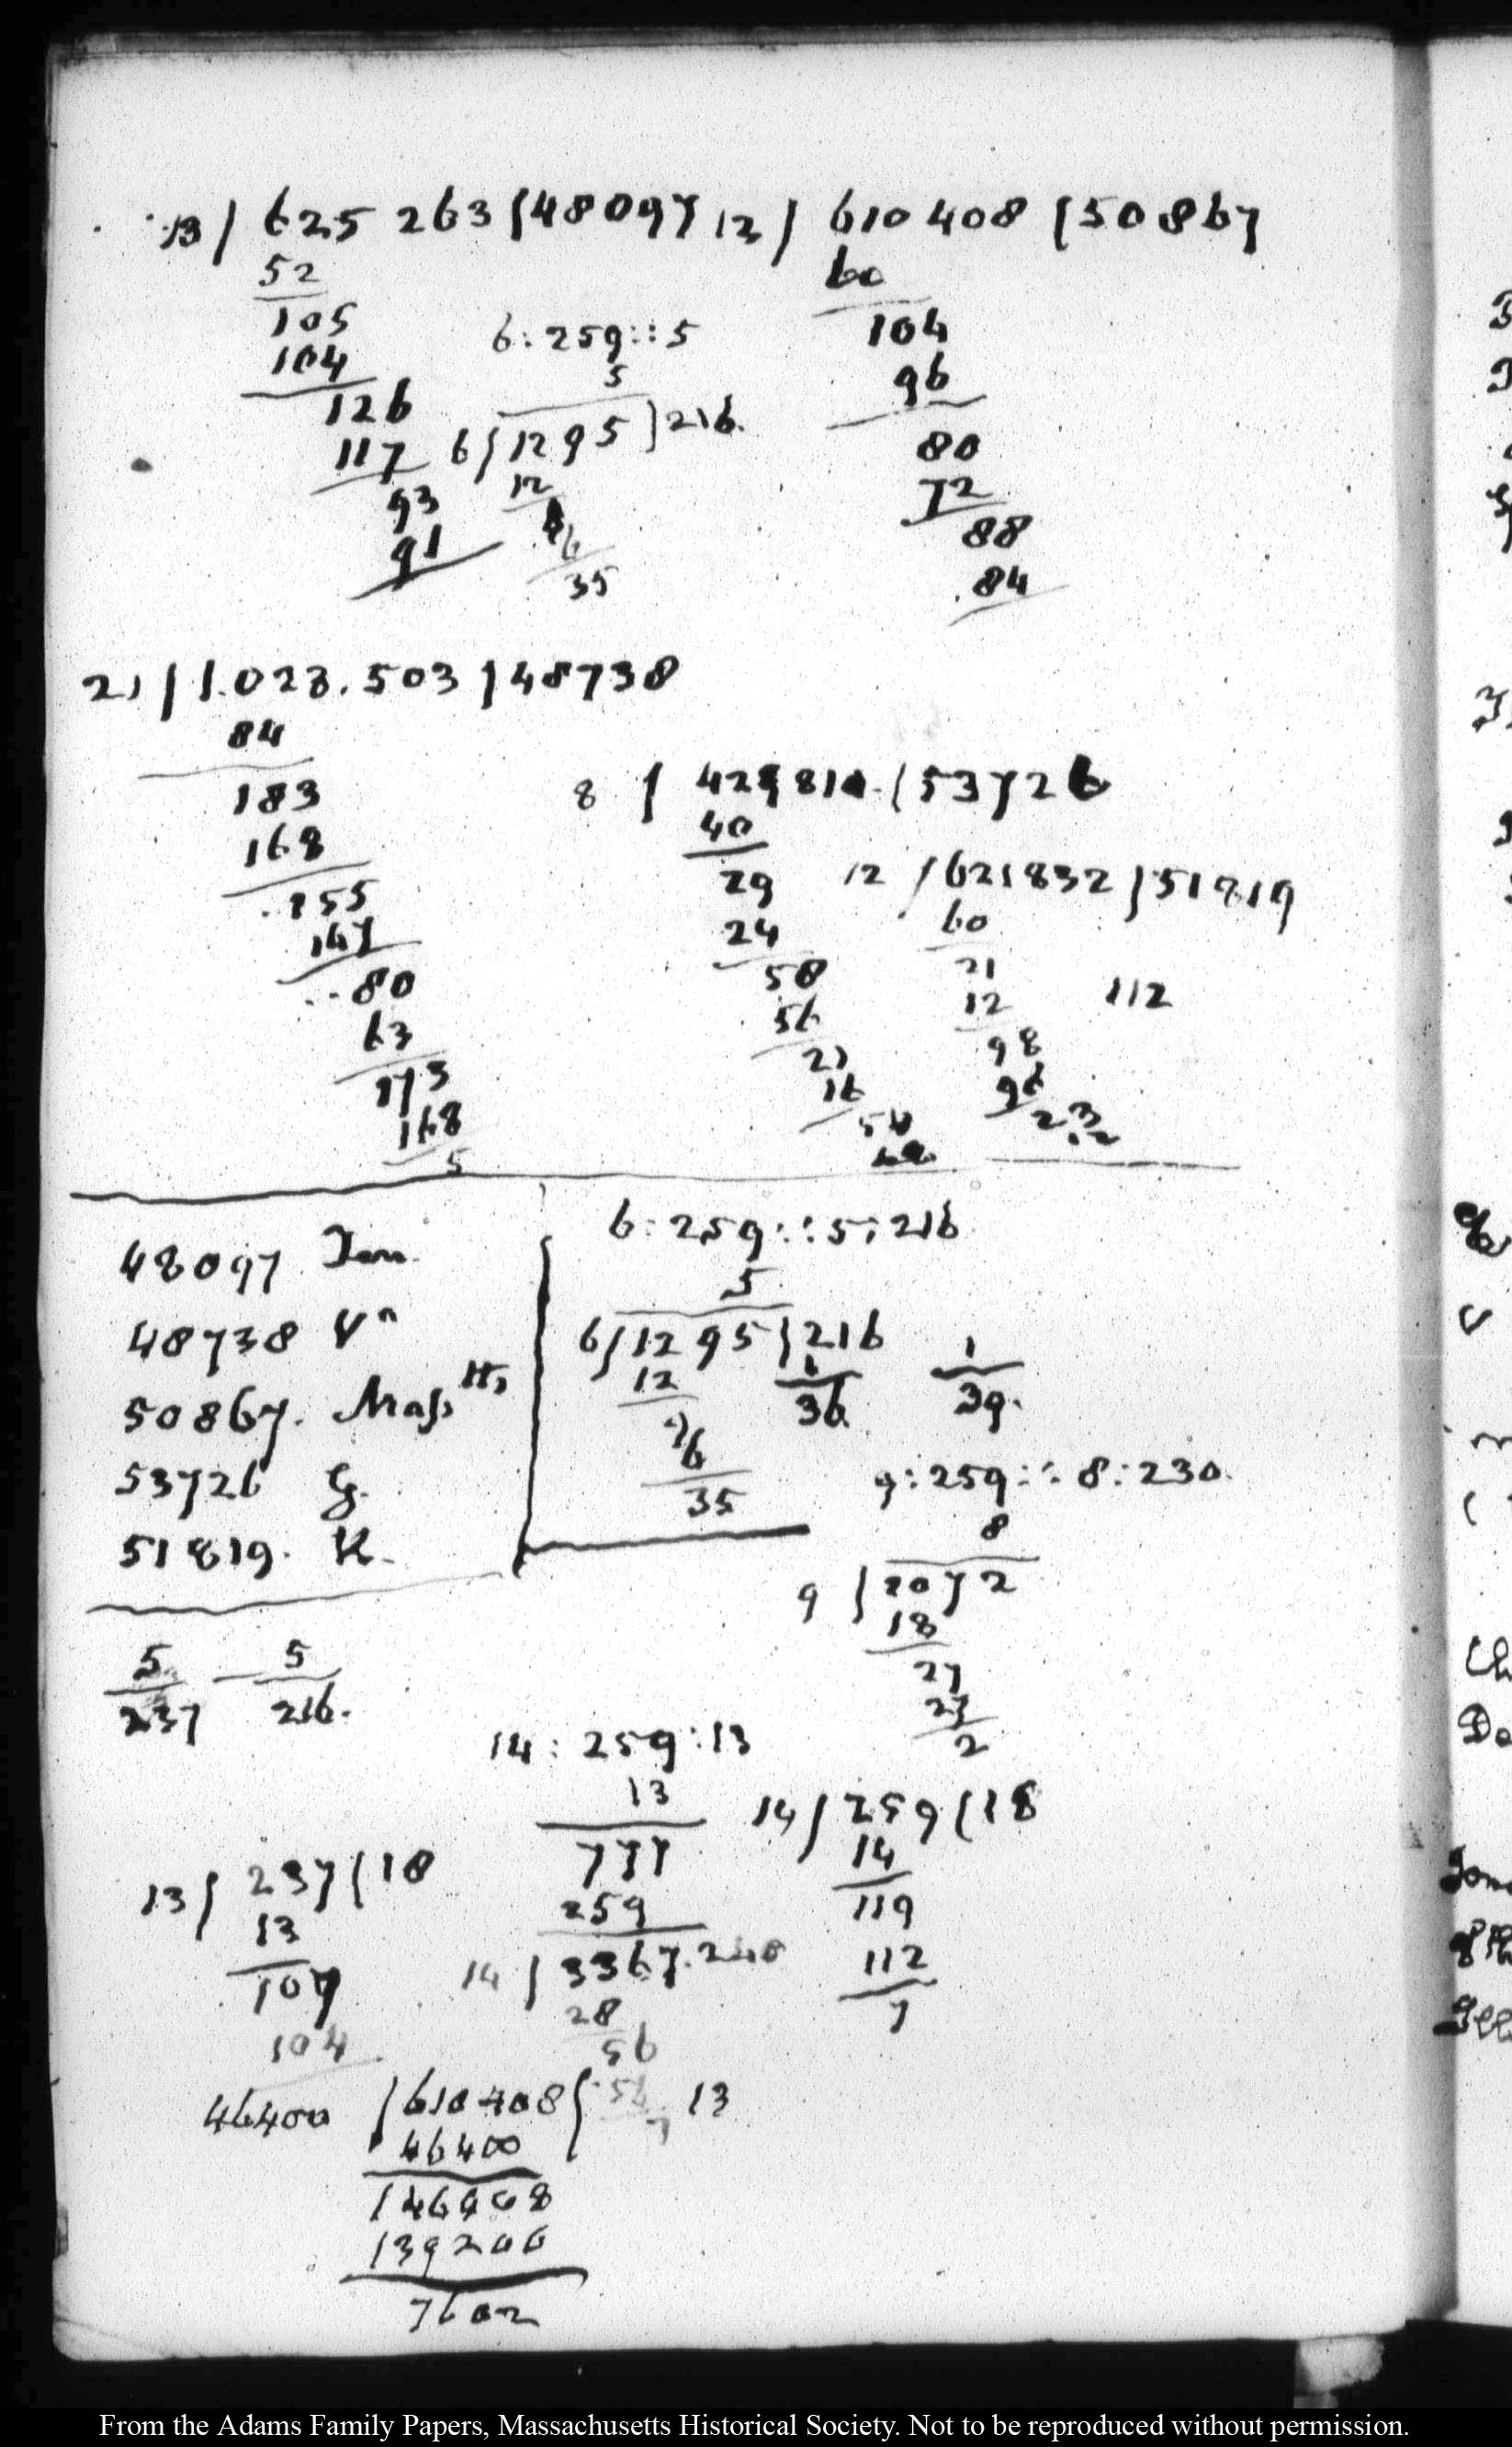 13 / 625 263 / 48097
52
105
104
126
117
93
91
6 : 259 :: 5
5
6 / 1295 ) 216.
12
35
12 / 610 408 / 50867
60
104
96
80
72
88
84
21 / 1.023.503 / 48738
84
183
168
155
147
80
63
173
168
5
8 / 429810 / 53726
40
29
24
58
56
21
16
50
48
12 / 621832 / 51819
60
21
12
98
96
23
12
112
48097 Ten.
48738 Va
50867. Massts
53726 G.
51819. K.
6 : 259 :: 5 : 216
5
6 / 1295 / 216
12
1
36
1
39.
96
35
9 : 259 :: 8 : 230.
8
9 / 2072
18
27
27
2
5
237
5
216.
14 : 259 : 13
13
777
259
14 / 3367. 240
28
56
56
7
14 / 259 / 18
14
119
112
7
13 / 237 / 18
13
107
104
46400 / 610408 / 13
46400
146408
139200
7602
Ch
Do
From the Adams Family Papers, Massachusetts Historical Society. Not to be reproduced without permission.